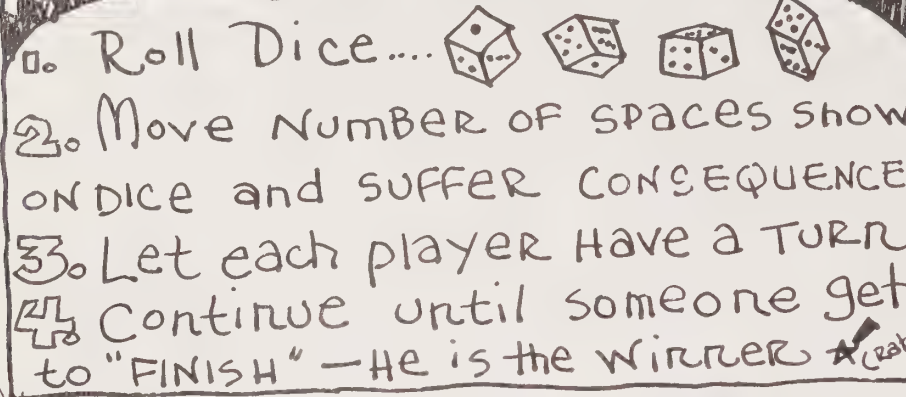 1. Roll Dice....
2. Move Number of spaces show
on dice and suffer consequence
3. Let each player have a turn
4. Continue until someone get
to "FINISH" — He is the winner